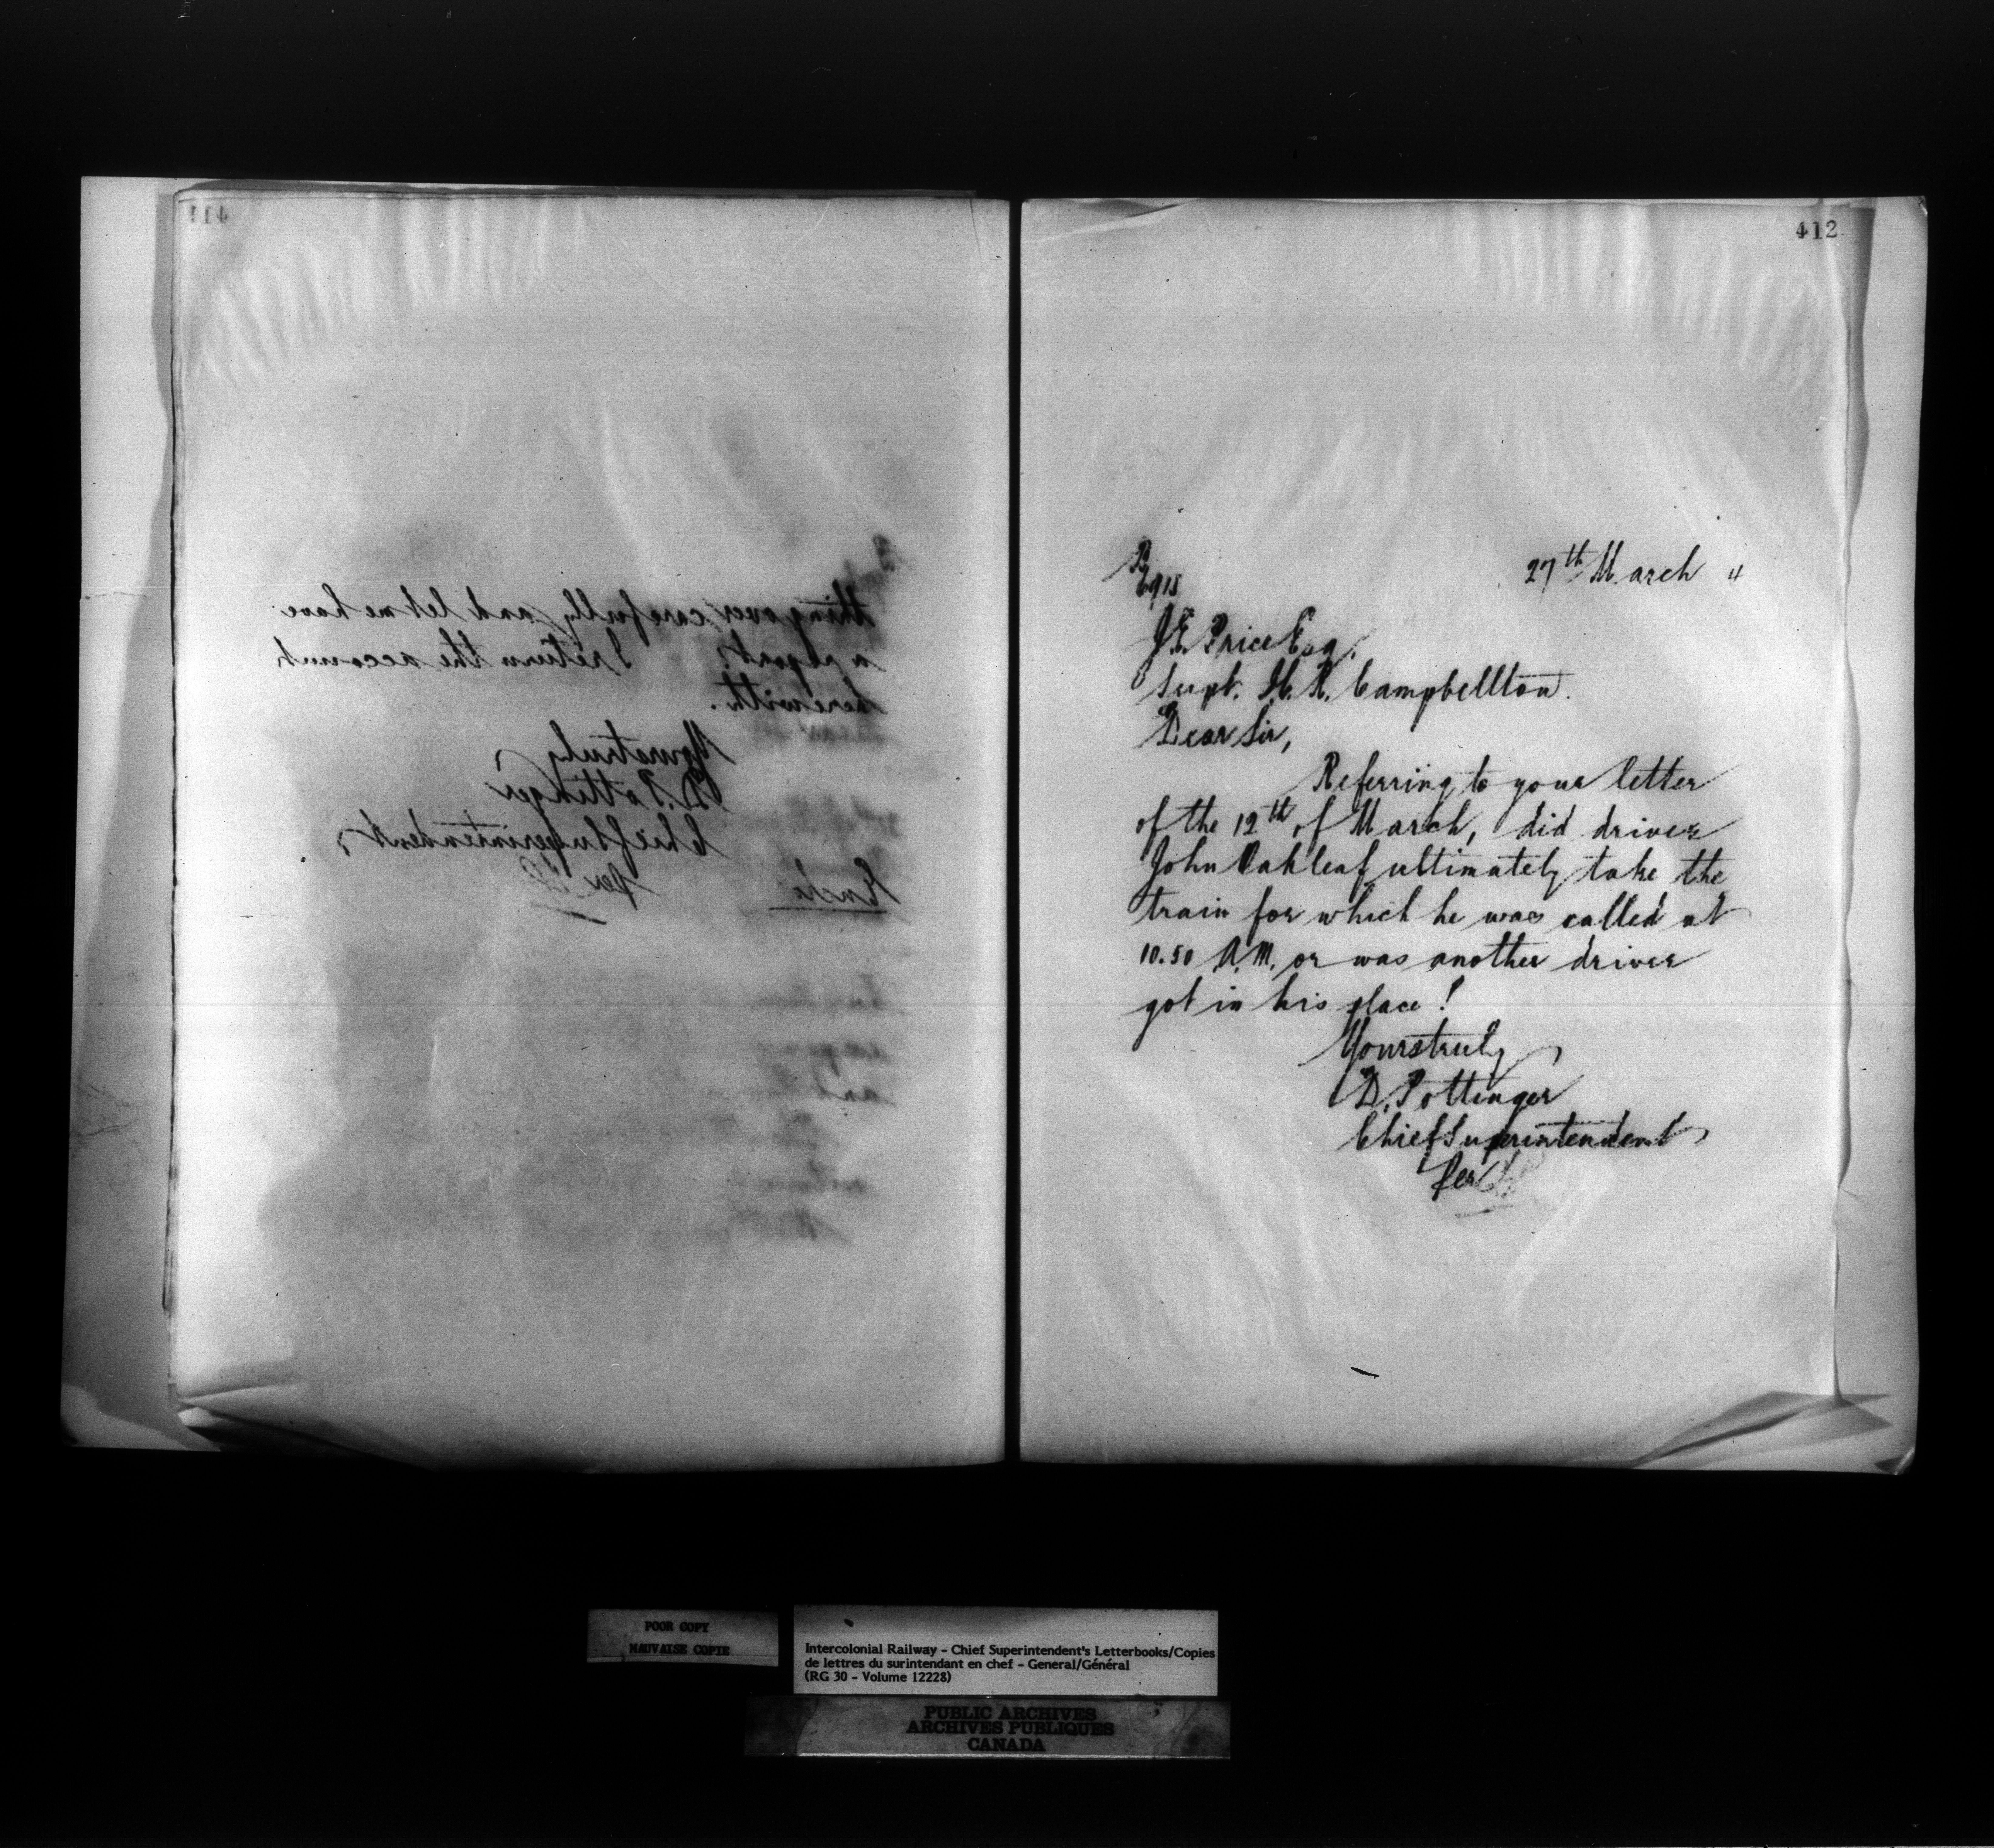 411
thing over carefully and let me have
a report. I return the account
herewith.
Yours truly
D. Pottinger
Chief Superintendent
Per
412
27th March 4
J.E. Price Esq.
Supt. I.C.R. Campbellton.
Dear Sir,
Referring to your letter
of the 12th of March, did driver
John Oakleaf ultimately take the
train for which he was called at
10.50 A.M. or was another driver
got in his place!
Yours truly
D. Pottinger
Chief Superintendent
Per
POOR COPY
MAUVAISE COPIE
Intercolonial Railway - Chief Superintendent's Letterbooks/Copies
de lettres du surintendant en chef - General/Général
(RG 30 - Volume 12228)
PUBLIC ARCHIVES
ARCHIVES PUBLIQUES
CANADA